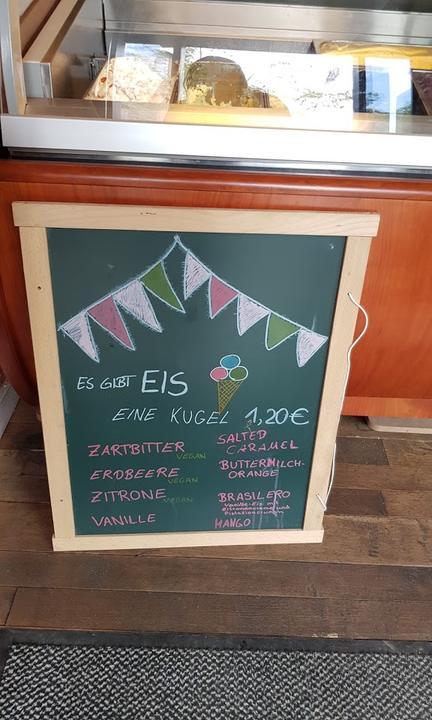 ES GIBT EIS
EINE KUGEL 1,20€
ZARTBITTER
VEGAN
ERDBEERE
VEGAN
ZITRONE
VEGAN
VANILLE
SALTED
CARAMEL
BUTTERMILCH-
ORANGE
BRASILERO
Vanille-Eis mit
und
MANGO